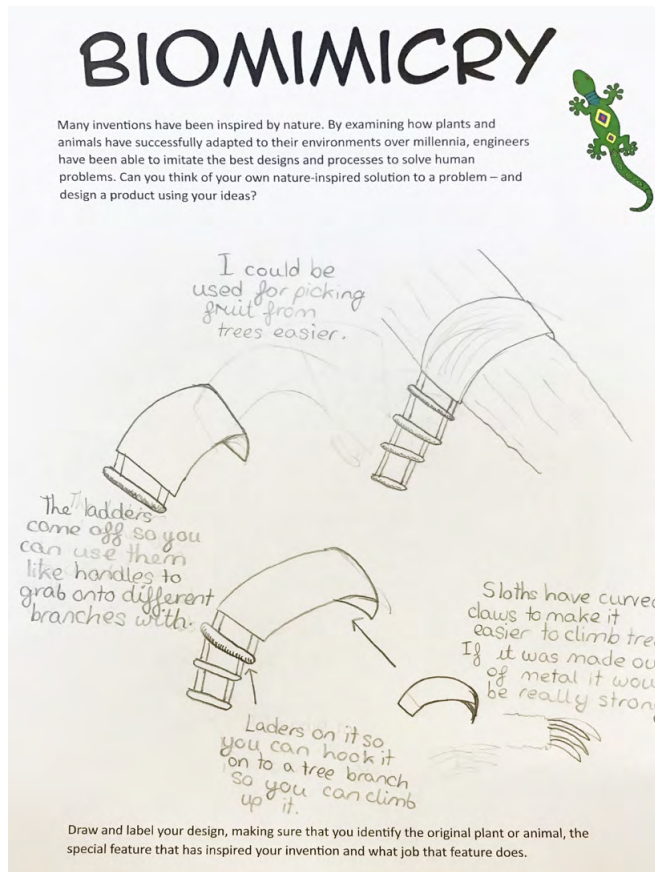 BIOMIMICRY
Many inventions have been inspired by nature. By examining how plants and
animals have successfully adapted to their environments over millennia, engineers
have been able to imitate the best designs and processes to solve human
problems. Can you think of your own nature-inspired solution to a problem – and
design a product using your ideas?
I could be
used for picking
fruit from
trees easier.
The ladders
come off so you
can use them
like handles to
grab onto different
branches with.
Sloths have curve
claws to make it
easier to climb tre
If it was made ou
of metal it wou
be really stron
Laders on it so
you can hook it
on to a tree branch
so you can climb
up it.
Draw and label your design, making sure that you identify the original plant or animal, the
special feature that has inspired your invention and what job that feature does.